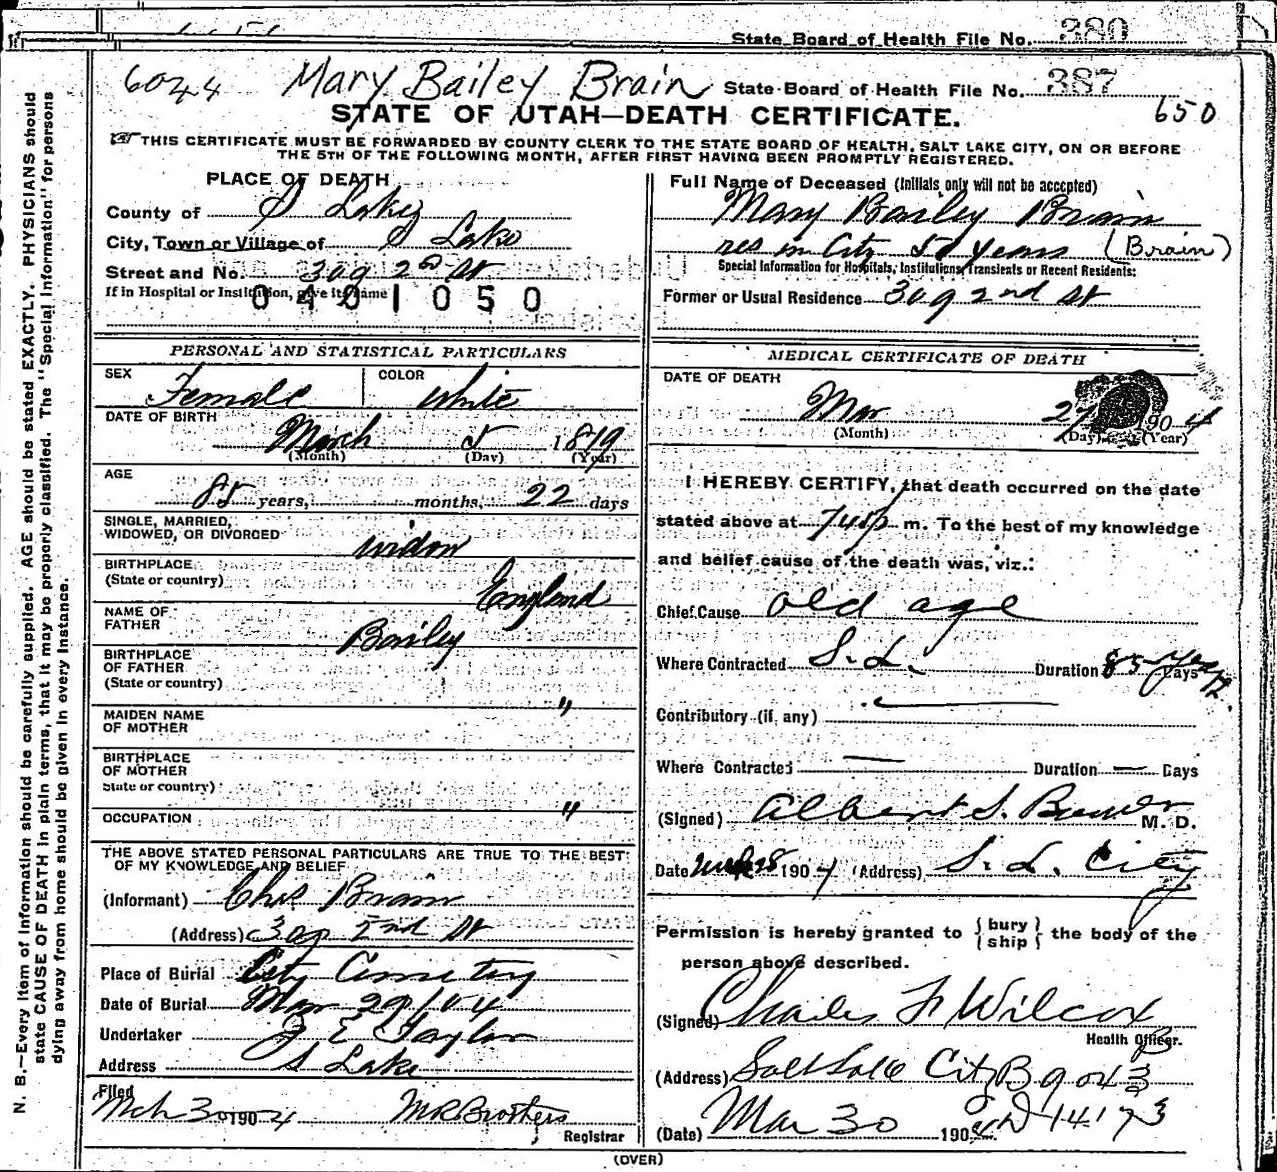 State Board of Health File No. 380
6024 Mary Bailey Brain State Board of Health File No. 387
STATE OF UTAH—DEATH CERTIFICATE. 650
THIS CERTIFICATE MUST BE FORWARDED BY COUNTY CLERK TO THE STATE BOARD OF HEALTH, SALT LAKE CITY, ON OR BEFORE
THE 5TH OF THE FOLLOWING MONTH, AFTER FIRST HAVING BEEN PROMPTLY REGISTERED.
PLACE OF DEATH
County of S Lake
City, Town or Village of S Lake
Street and No. 309 2nd St
If in Hospital or Institution, give its name
0401050
Full Name of Deceased (Initials only will not be accepted)
Mary Bailey Brain
res in City 50 Years (Brain)
Special Information for Hospitals, Institutions, Transients or Recent Residents:
Former or Usual Residence 309 2nd St
PERSONAL AND STATISTICAL PARTICULARS
SEX Female COLOR White
DATE OF BIRTH
March 5 1819
(Month) (Day) (Year)
AGE
85 years, months, 22 days
SINGLE, MARRIED,
WIDOWED, OR DIVORCED widow
BIRTHPLACE
(State or country) England
NAME OF
FATHER Bailey
BIRTHPLACE
OF FATHER
(State or country) "
MAIDEN NAME
OF MOTHER
BIRTHPLACE
OF MOTHER
State or country) "
OCCUPATION
THE ABOVE STATED PERSONAL PARTICULARS ARE TRUE TO THE BEST
OF MY KNOWLEDGE AND BELIEF
(Informant) Chas Brain
(Address) 309 2nd St
Place of Burial City Cemetery
Date of Burial Mar 29/04
Undertaker J E Taylor
Address S Lake
Filed
Mch 30 1904 M R Brothers
Registrar
MEDICAL CERTIFICATE OF DEATH
DATE OF DEATH
Mar 27 1904
(Month) (Day) (Year)
I HEREBY CERTIFY, that death occurred on the date
stated above at 745 p m. To the best of my knowledge
and belief cause of the death was, viz.:
Chief Cause old age
Where Contracted S. L. Duration 85 Days
Contributory (if any) —
Where Contracted — Duration — Days
(Signed) Albert S. M. D.
Date 28 1904 (Address) S. L. City
Permission is hereby granted to { bury ship } the body of the
person above described.
(Signed) Charles F Wilcox
Health Officer.
(Address) Salt Lake City B 9043
(Date) Mar 30 1904 D 14173
(OVER)
N. B.—Every item of information should be carefully supplied. AGE should be stated EXACTLY. PHYSICIANS should
state CAUSE OF DEATH in plain terms, that it may be properly classified. The "Special Information" for persons
dying away from home should be given in every instance.